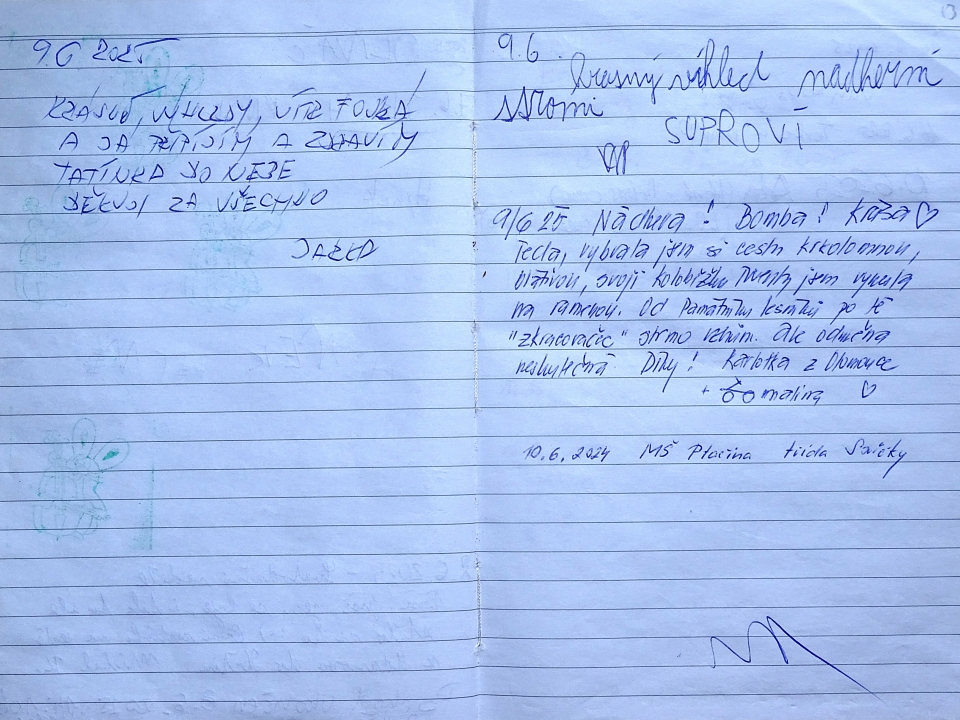 9.6 2025
KRÁSNÉ VÝHLEDY, VÍTR FOUKÁ
A JÁ PŘIPÍJÍM A ZDRAVÍM
TATÍNKA DO NEBE
DĚKUJI ZA VŠECHNO
9.6.
krasný víhled nadherní
stromi
SUPROVÍ
9/6 25 Nádhera! Bomba! Krása ♡
Teda, vybrala jsem si cestu krkolomnou,
svoji koloběžku jsem
na ramenou. Od Památníku po té
"zkracovačce" strmo vzhůru. Ale odměna
neskutečná. Díky! Karlotka z Olomouce
+ malina ♡
10.6.2024 MŠ třída